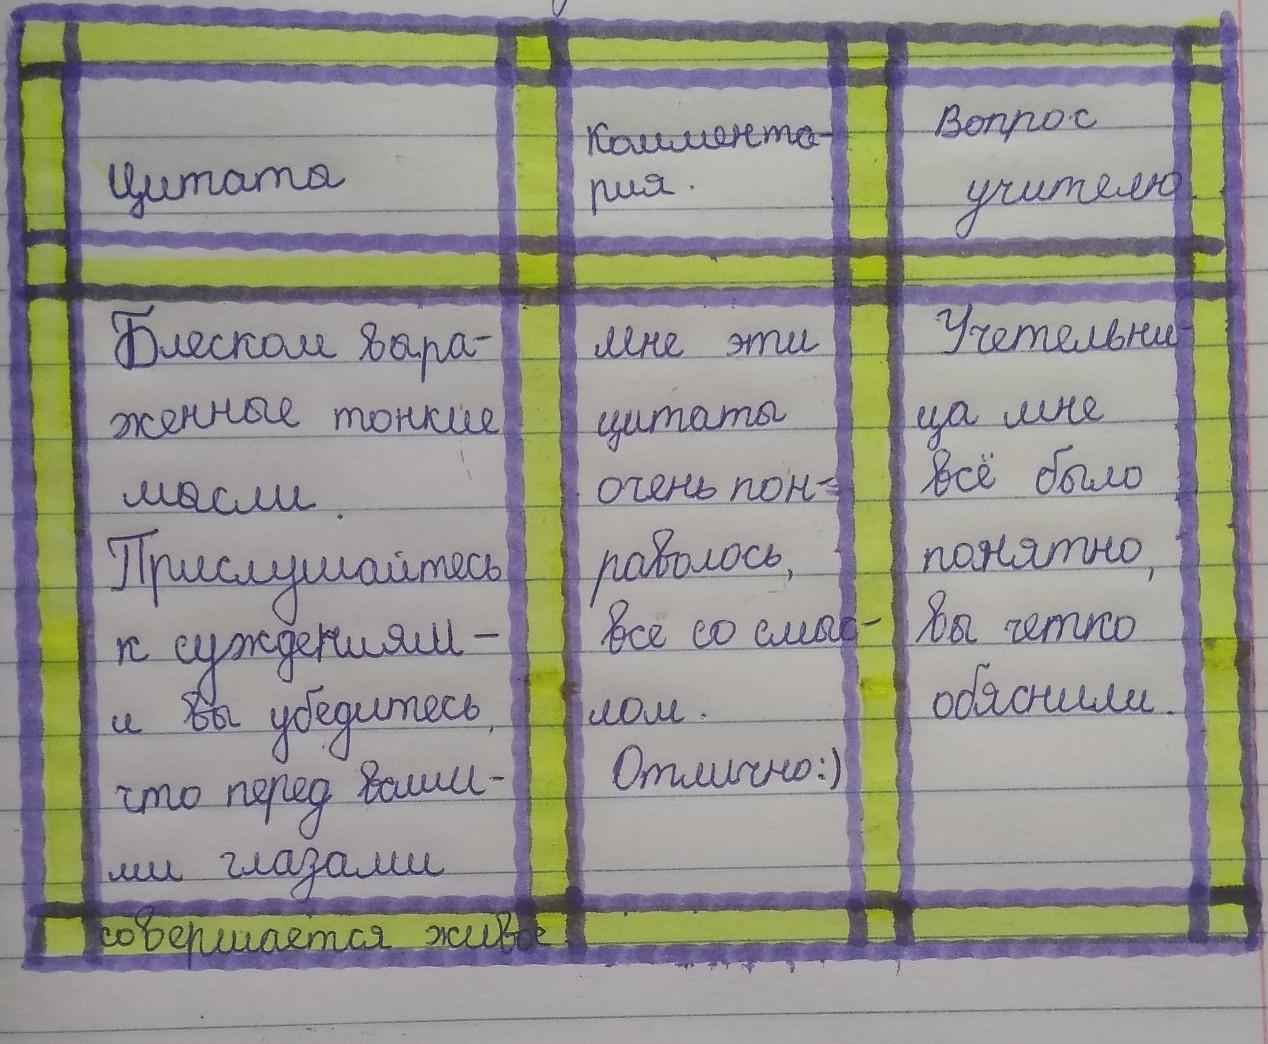 Цитата
Коммента-
рия.
Вопрос
учителю
Блеском выра-
женные тонкие
мысли.
Прислушайтесь
к суждениям -
и вы убедитесь,
что перед ваши-
ми глазами
совершается живое
мне эти
цитаты
очень пон-
раволось,
всё со смыс-
лом.
Отлично:)
Учетельни-
ца мне
всё было
понятно,
вы четко
обяснили.